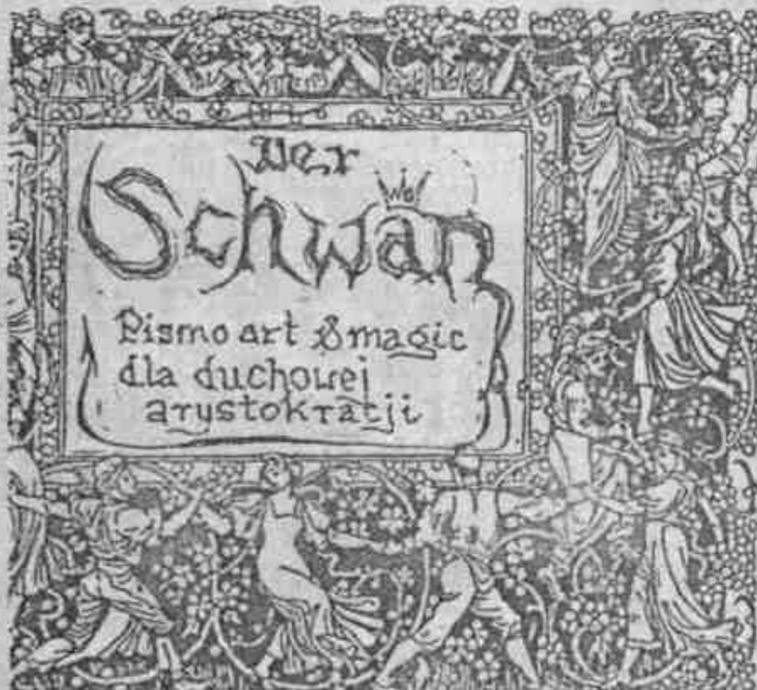 Der
Schwan
Pismo art & magic
dla duchowej
arystokratji